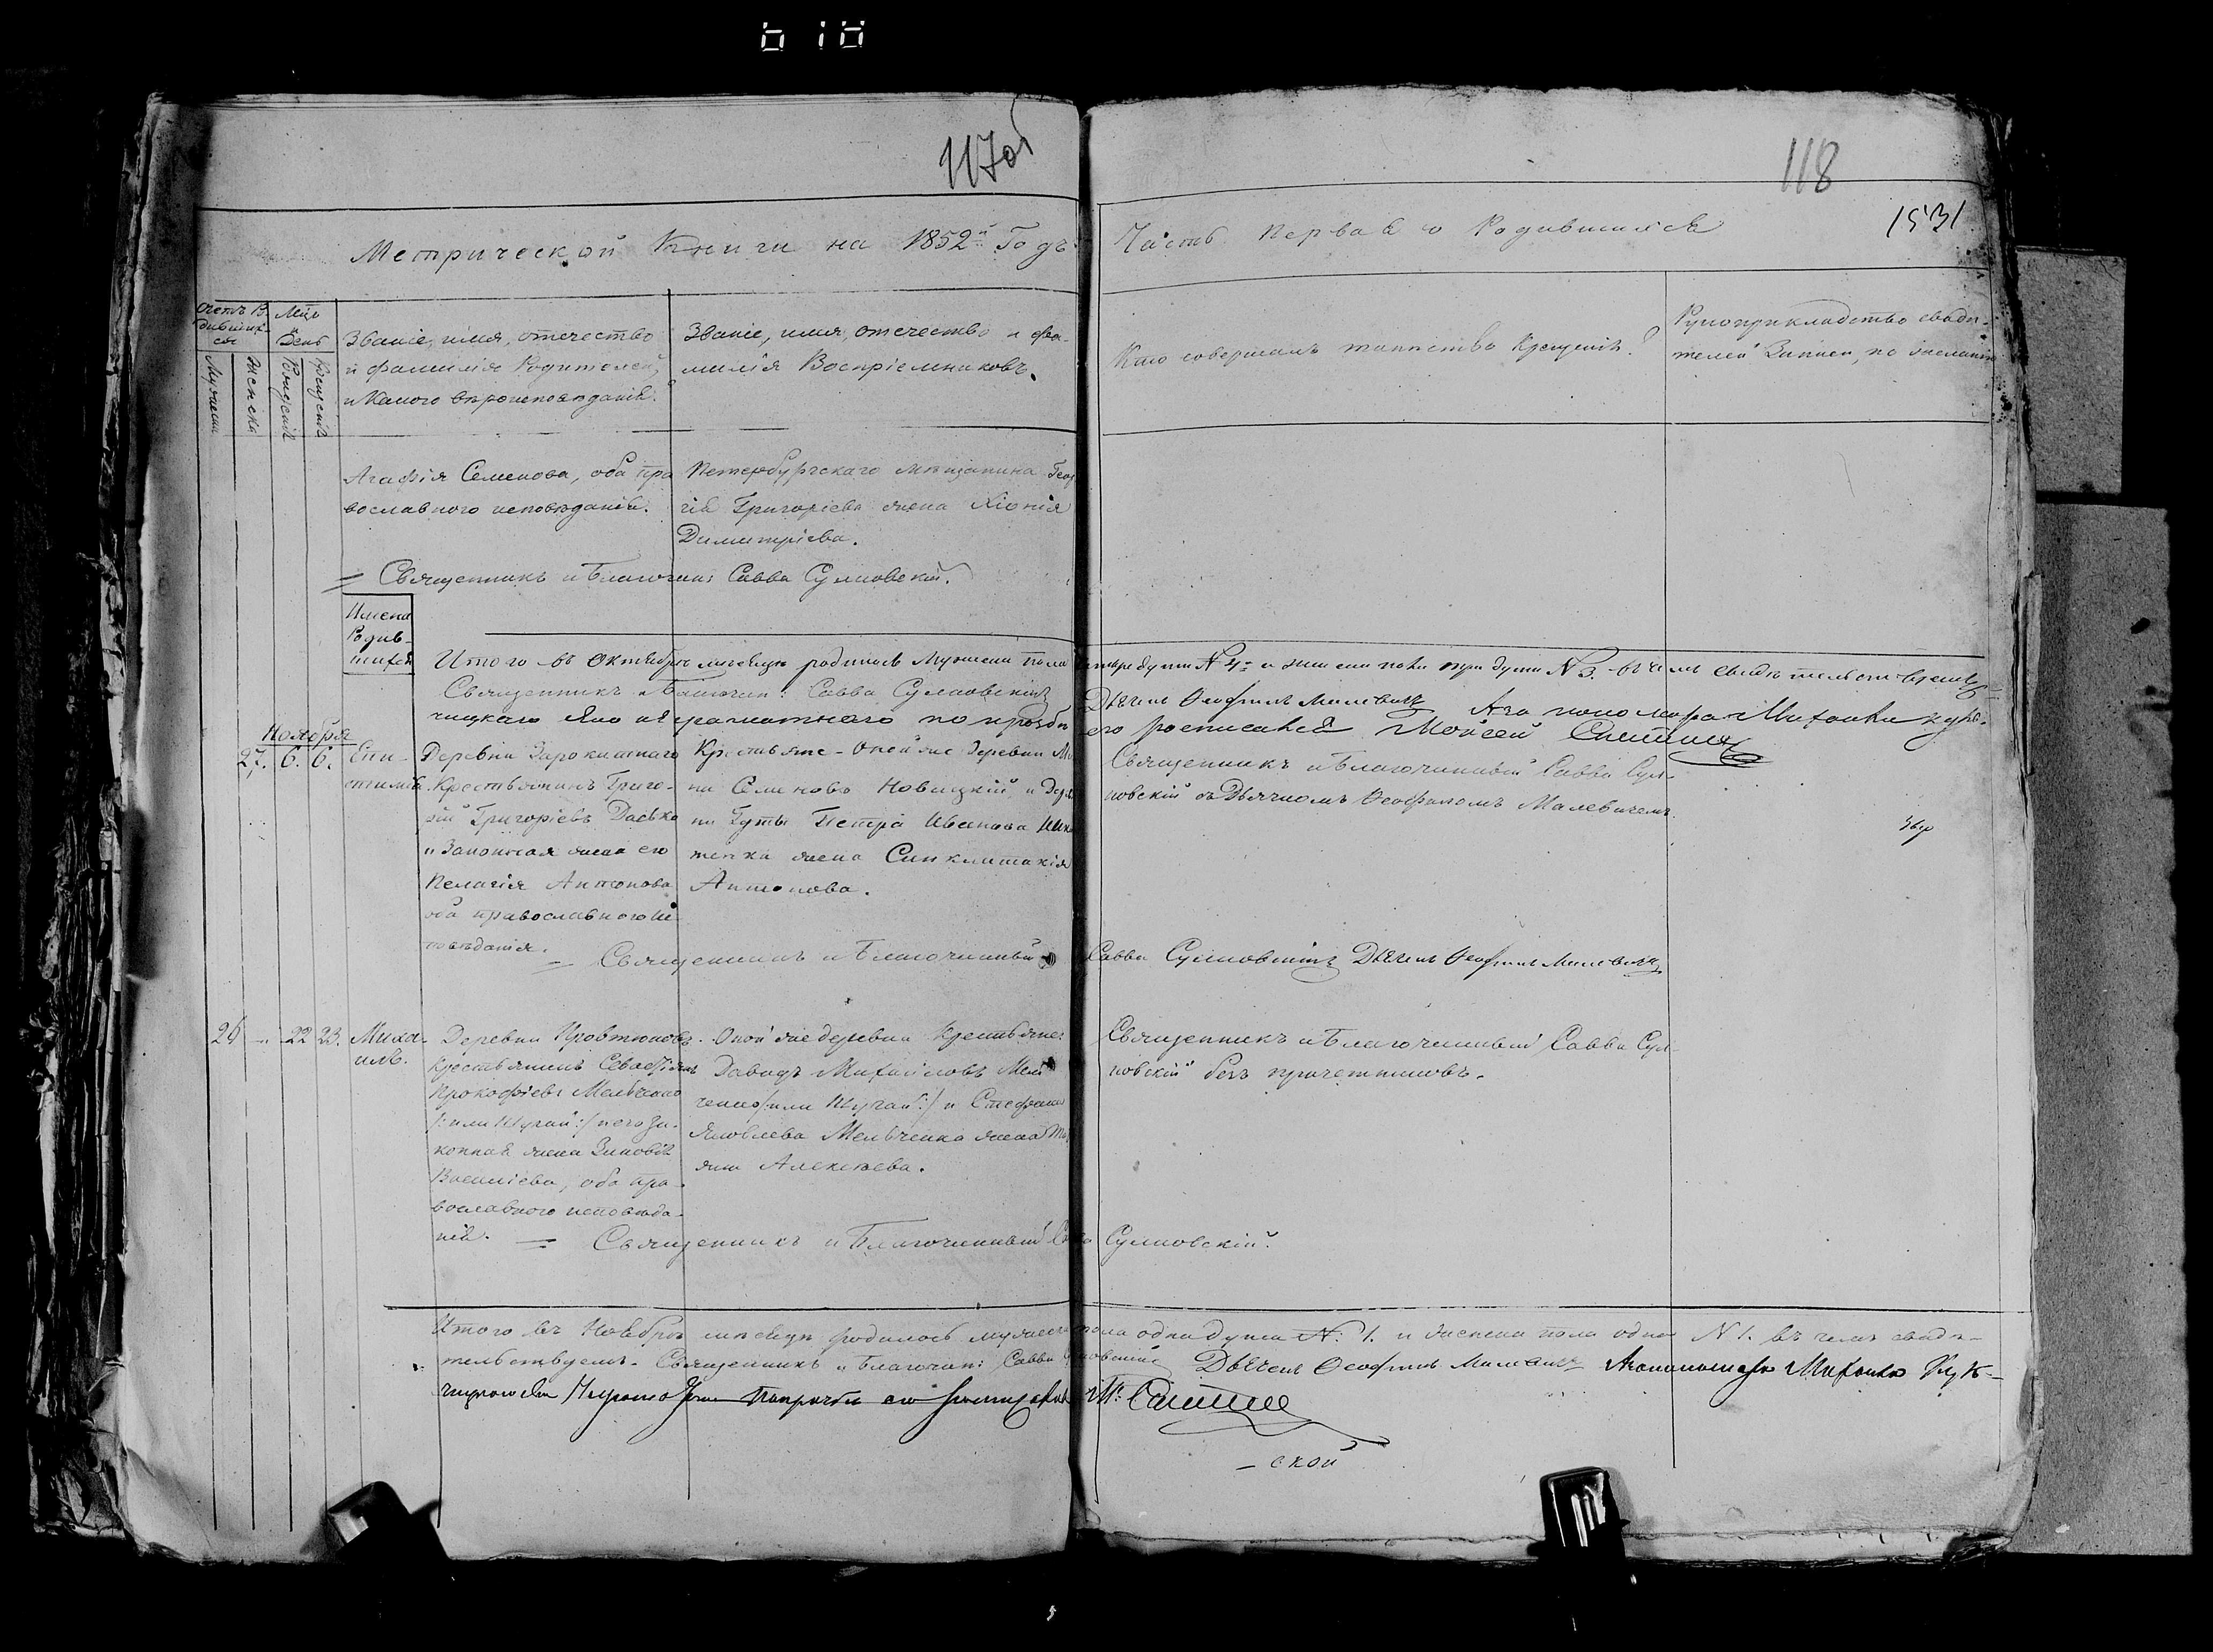 117об
118
1531
Метрической Книги на 1852й Годъ
Часть Первая о Родившихся
Счетъ Ро-
дивших-
ся
Мужеска
Женска
Мсцъ
и
День
Рожденія
Крещенія
Званіе, имя, отечество
и фамилія Родителей,
и Какого вѣроисповѣданія.
Званіе, имя, отечество и фа-
милія Воспріемниковъ.
Кто совершалъ таинство Крещенія?
Рукоприкладство свидѣ-
телей Записи, по желанію
Агафія Семенова, оба пра
вославного исповѣданія.
Петербургскаго мѣщанина Геор
гія Григоріева жена Хіонія
Димитріева.
= Священникъ и Благочин: Савва Сулковскій.
Имена
Родив-
шихся
Итого въ Октябрѣ месяцѣ родилось мужеска пола четыре души № 4 и женска пола три души № 3. въ чемъ свидѣтельствуемъ
Священникъ и Благочин: Савва Сулковскій Дьячекъ Ѳеофилъ Малевичъ А за пономаря Михаила Куль-
чицкаго яко неграмотнаго по прозьбѣ его росписался Мойсей
Ноября
27. 6. 6. Епи-
стимія.
Деревни Зарокитнаго
Крестьянинъ Григо-
рій Григоріевъ Дасько
и Законная жена его
Пелагія Антонова
оба православного ис
повѣданія.
Крестьяне - Оной же деревни Ми
на Семеновъ Новицкій и Дерев
ни Гуты Петра Иванова
женка жена Синклитикія
Антонова.
Священникъ и Благочинный Савва Сул-
ковскій съ Дьячкомъ Ѳеофиломъ Малевичемъ.
= Священникъ и Благочинный Савва Сулковскій Дьячекъ Ѳеофилъ Малевичъ
26 - 22 23. Миха-
илъ.
Деревни Кровтюновъ.
Крестьянинъ Севастіянъ
Прокофіевъ Мельченко
/: или Шугай :/ и его За-
конная жена Зиновія
Василіева, оба пра-
вославного исповѣда-
нія.
Оной же деревни Крестьяне:
Давидъ Михайловъ Мель
ченко /: или Шугай :/ и Стефана
Яковлева Мельченка жена
Алексѣева.
Священникъ и Благочинный Савва Сул-
ковскій безъ причетниковъ.
= Священникъ и Благочинный Савва Сулковскій.
Итого въ Ноябрѣ месяцѣ родилось мужеска пола одна душа №: 1. и женска пола одна № 1. въ чемъ свидѣ-
тельствуемъ. Священникъ и Благочин: Савва Сулковскій Дьячекъ Ѳеофилъ Малевичъ А за пономаря Михаила Куль-
чицкого яко Неграмотного По прозбѣ его росписался М:
- ской